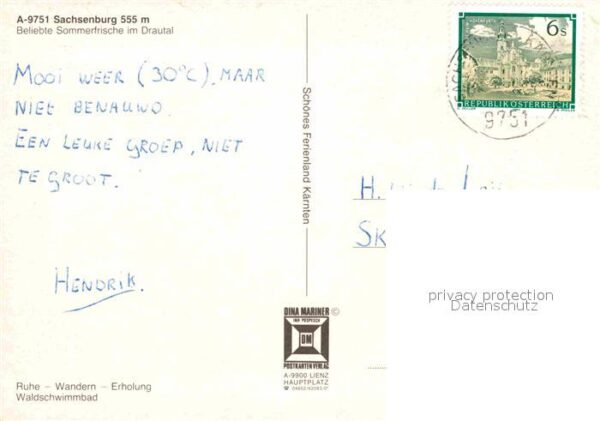 A-9751 Sachsenburg 555 m
Beliebte Sommerfrische im Drautal
MOOI WEER (30°C), MAAR
NIET BENAUWD.
EEN LEUKE GROEP, NIET
TE GROOT.
HENDRIK.
Ruhe – Wandern – Erholung
Waldschwimmbad
Schönes Ferienland Kärnten
DINA MARINER ©
DM
POSTKARTENVERLAG
A-9900 LIENZ
HAUPTPLATZ
6s
REPUBLIK ÖSTERREICH
9751
H.
SK
privacy protection
Datenschutz